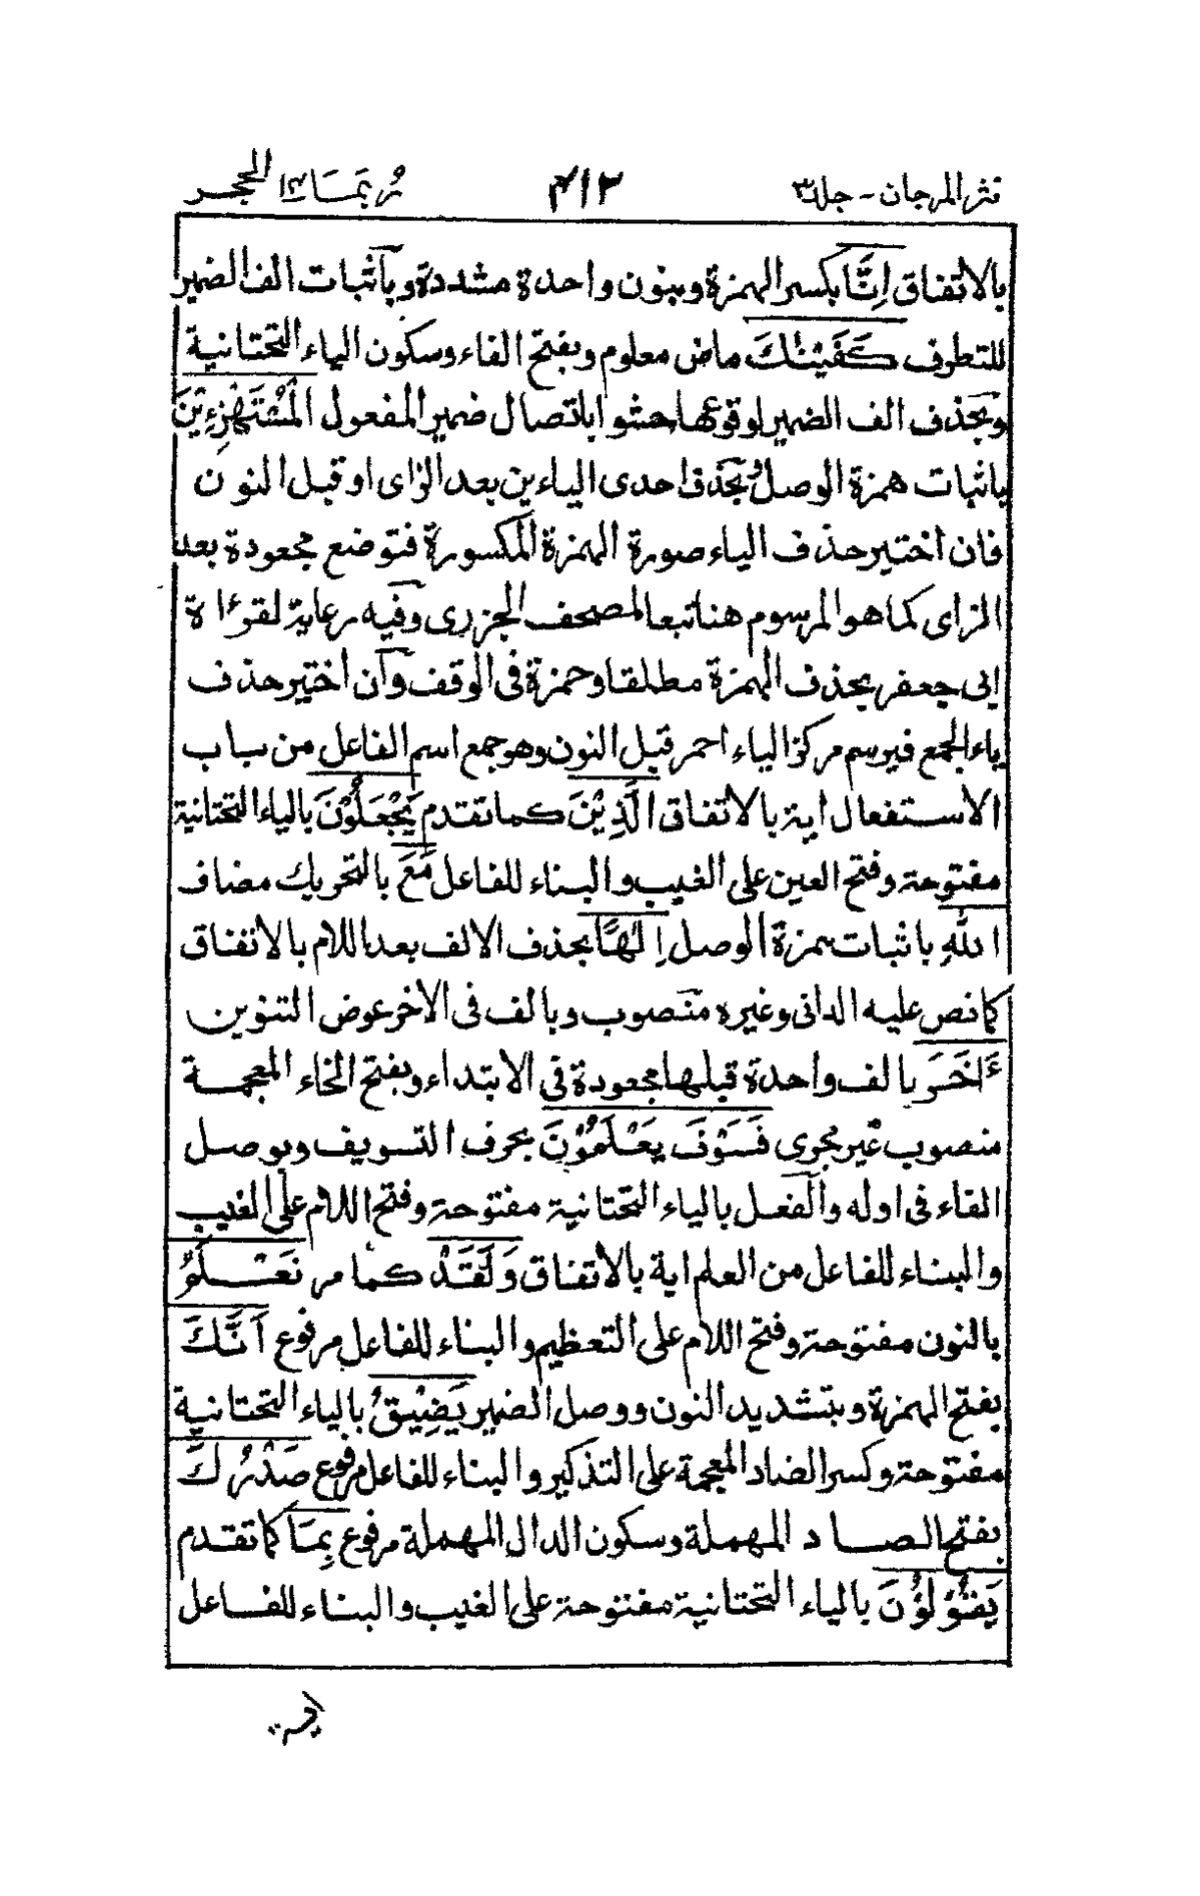 نثر المرجان - جلد ٣ ٤١٢ رُبَمَا ١٤ الحجر
بالاتفاق اِنَّا بكسر الهمزة وبنون واحدة مشددة وباثبات الف الضمير
للتطرف كَفَيْنٰكَ ماض معلوم وبفتح الفاء وسكون الياء التحتانية
وبحذف الف الضمير لوقوعها حشوا باتصال ضمير المفعول الْمُسْتَهْزِءِيْنَ
باثبات همزة الوصل وبحذف احدى الياءين بعد الزاى او قبل النون
فان اختير حذف الياء صورة الهمزة المكسورة فتوضع مجعودة بعد
الزاى كما هو المرسوم هنا تبعا لمصحف الجزرى وفيه رعاية لقرءاة
ابى جعفر بحذف الهمزة مطلقا وحمزة فى الوقف وان اختير حذف
ياء الجمع فيرسم مركز الياء احمر قبل النون وهو جمع اسم الفاعل من باب
الاستفعال اية بالاتفاق الَّذِيْنَ كما تقدم يَجْعَلُوْنَ بالياء التحتانية
مفتوحة وفتح العين على الغيب والبناء للفاعل مَعَ بالتحريك مضاف
اللهِ باثبات همزة الوصل اِلٰهًا بحذف الالف بعد اللام بالاتفاق
كما نص عليه الدانى وغيره منصوب وبالف فى الاخر عوض التنوين
ءَاخَرَ بالف واحدة قبلها مجعودة فى الابتداء وبفتح الخاء المعجمة
منصوب غير مجرى فَسَوْفَ يَعْلَمُوْنَ بحرف التسويف وبوصل
الفاء فى اوله والفعل بالياء التحتانية مفتوحة وفتح اللام على الغيب
والبناء للفاعل من العلم اية بالاتفاق وَلَقَدْ كما مر نَعْلَمُ
بالنون مفتوحة وفتح اللام على التعظيم والبناء للفاعل مرفوع اَنَّكَ
بفتح الهمزة وبتشديد النون ووصل الضمير يَضِيْقُ بالياء التحتانية
مفتوحة وكسر الضاد المعجمة على التذكير والبناء للفاعل مرفوع صَدْرُكَ
بفتح الصاد المهملة وسكون الدال المهملة مرفوع بِمَا كما تقدم
يَقُوْلُوْنَ بالياء التحتانية مفتوحة على الغيب والبناء للفاعل